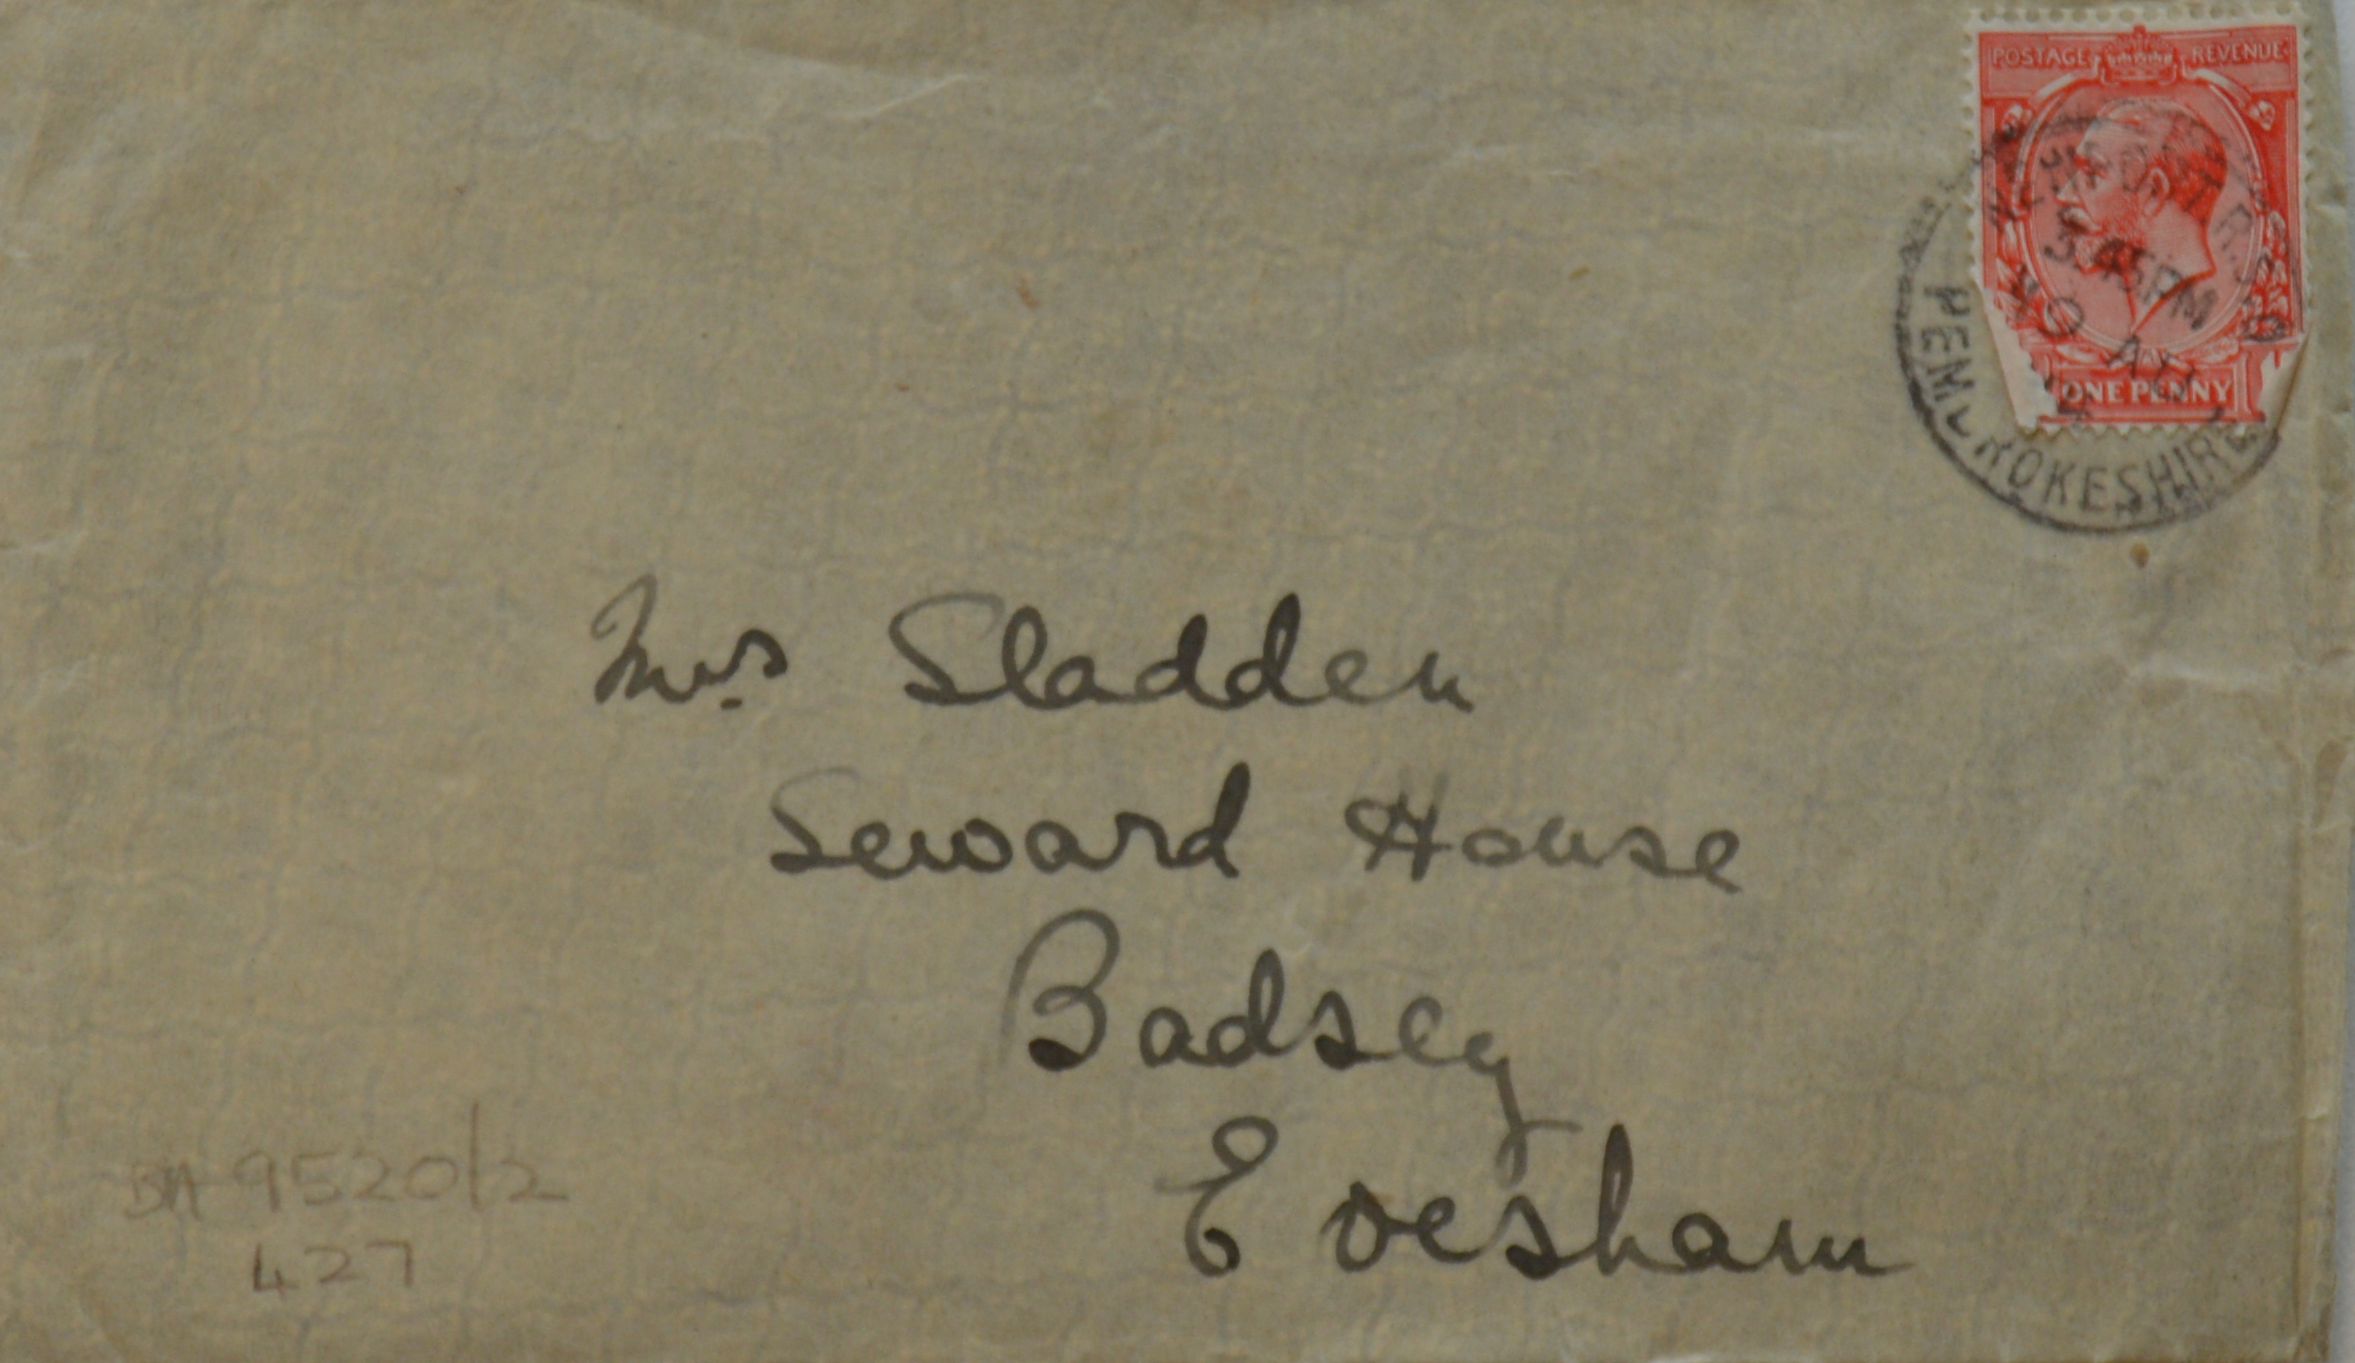 POSTAGE REVENUE
3.45PM
ONE PENNY
PEMBROKESHIRE
Mrs Sladden
Seward House
Badsey
Evesham
BA 9520/2
427